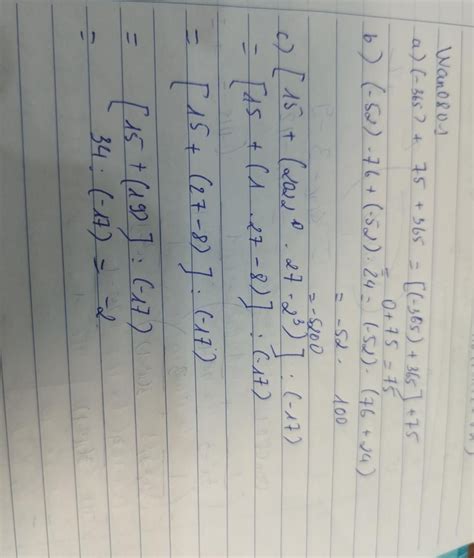 a) (-365) + 75 + 365 = [(-365) + 365] + 75
= 0 + 75 = 75
b) (-52) · 76 + (-52) · 24 = (-52) · (76 + 24)
= -52 · 100
= -5200
c) [15 + (2022⁰ · 27 - 2³)] : (-17)
= [15 + (1 · 27 - 8)] : (-17)
= [15 + (27 - 8)] : (-17)
= [15 + (19)] : (-17)
= 34 : (-17) = -2